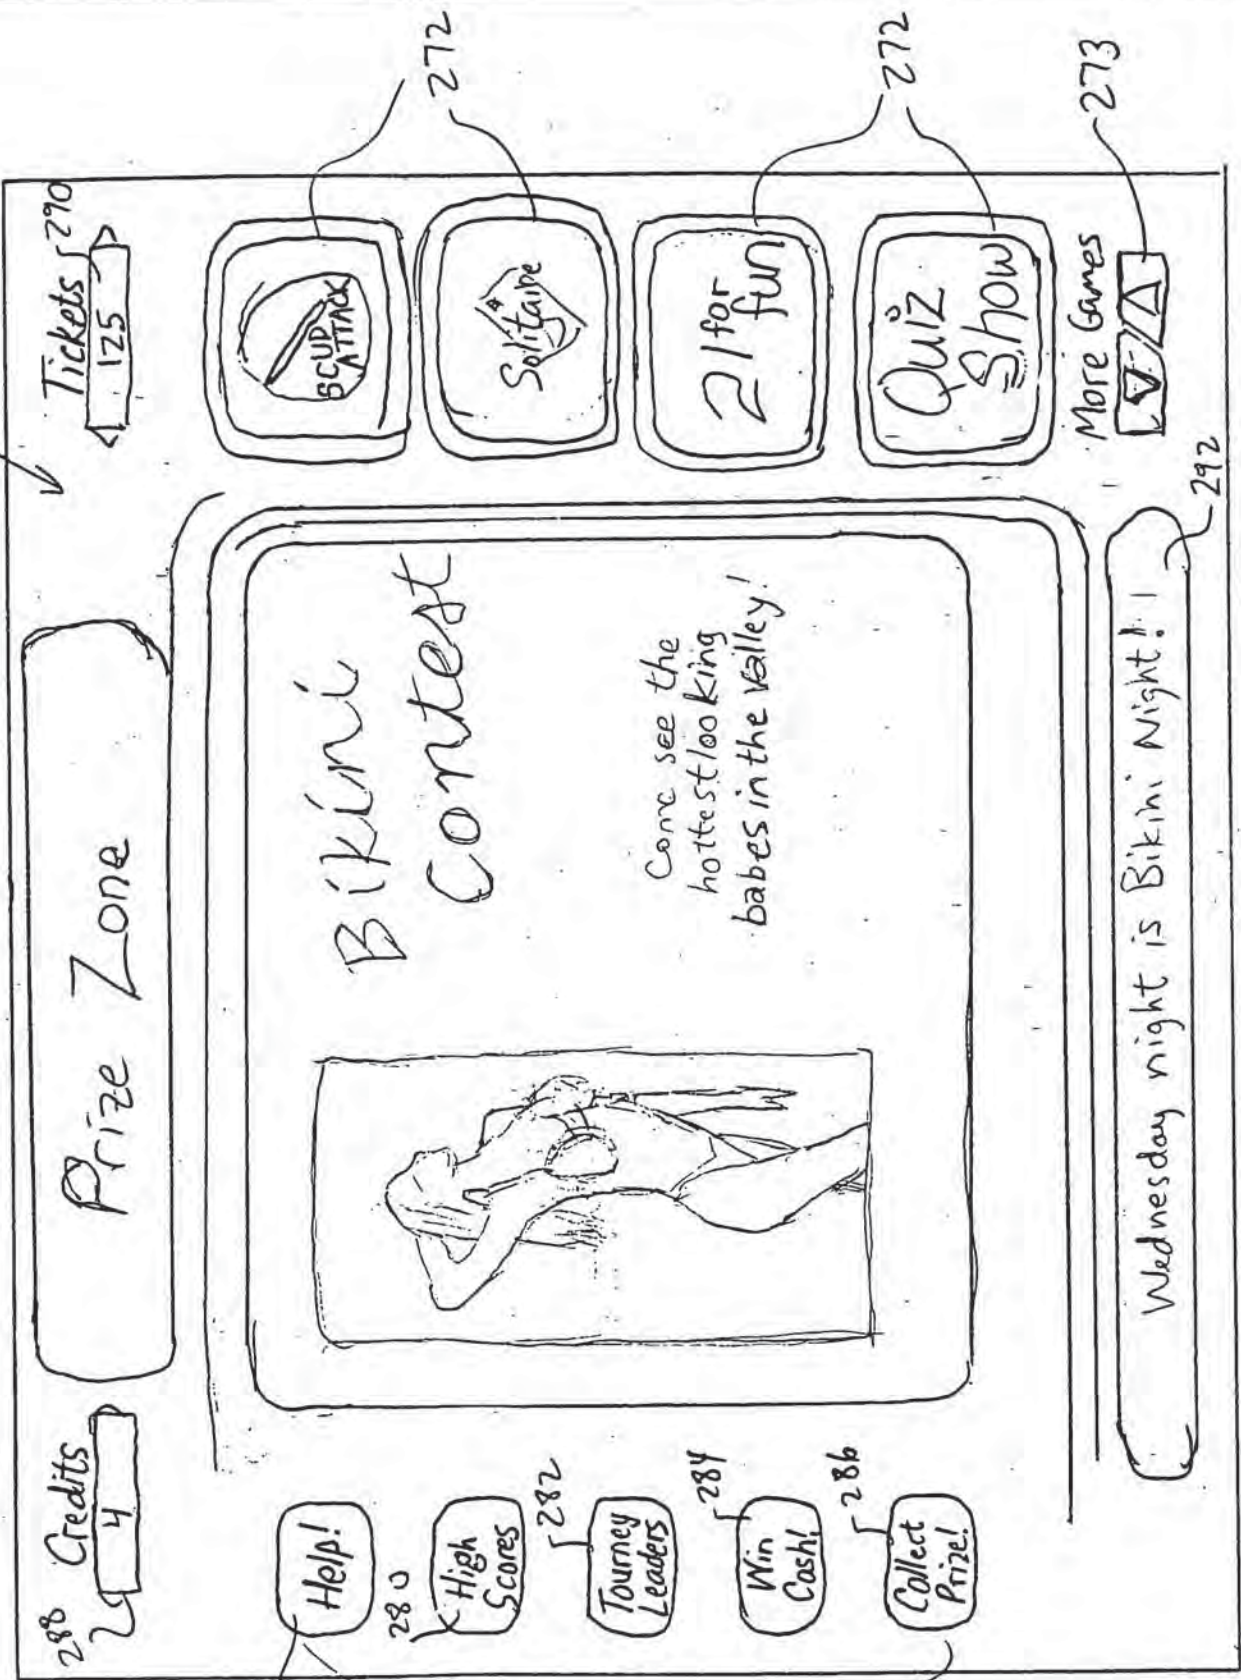 Prize Zone
288
Credits
4
Tickets
290
125
Help!
280
High
Scores
282
Tourney
Leaders
284
Win
Cash!
286
Collect
Prize!
Bikini
Contest
Come see the
hottest looking
babes in the valley!
SCUD
ATTACK
272
Solitaire
21 for
fun
272
Quiz
Show
More Games
273
Wednesday night is Bikini Night!!
292